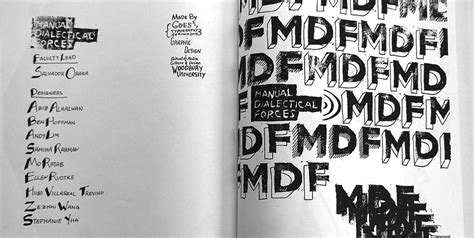 MANUAL
DIALECTICAL
FORCES
FACULTY LEAD
SALVADOR ORARA
DESIGNERS
AZIZ ALHALWAN
BEN HOFFMAN
ANDY LIM
SAMIHA RAHMAN
MO RAJAB
ELLEN RUDTKE
HUGO VILLAREAL TREVINO
ZEZHOU WANG
STEPHANIE YHA
MADE BY
GDES
TYPOGRAPHY 3
GRAPHIC
DESIGN
CULTURE & DESIGN
WOODBURY
UNIVERSITY
MDFMDF
MDFMDFMDF
MDFMDFMDF
MANUAL
DIALECTICAL
FORCES
MDFMD
MDFMDFMDF
MDFMDFMD
MDF
MDF